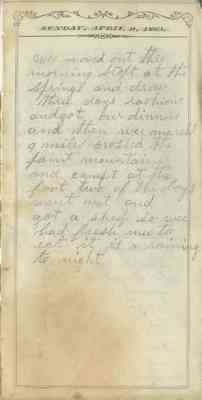 SUNDAY, APRIL 9, 1865.
wee moved out this
morning stopt at the
springs and drew
three days rashions
and got our dinner
and then wee march
9 miles crossed the
mountain
and campt at the
foot two of the boys
went out and
got a sheep so wee
had fresh meet to
eat it is raining
to night